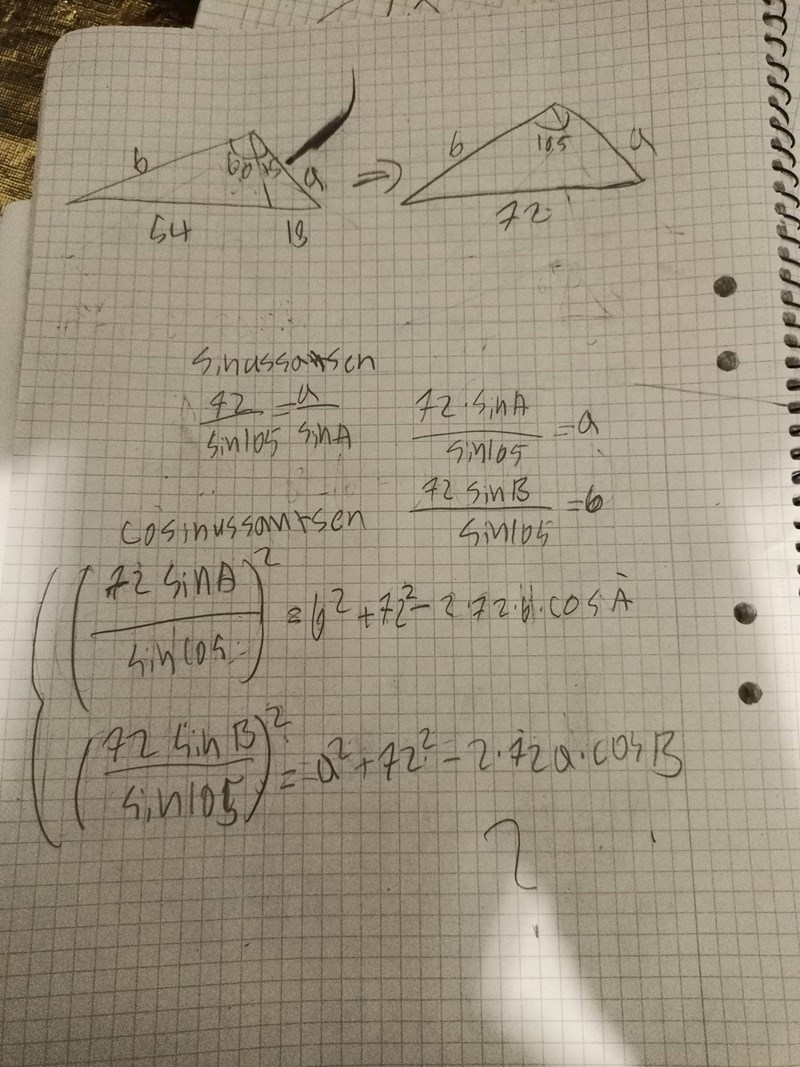 b 60 45 a => b 105 a
54 18 72
sinussatsen
72/sin105 = a/sinA 72·sinA/sin105 = a
72 sinB/sin105 = b
cosinussamtsen
(72 sinA/sin105)² = b² + 72² - 2·72·b·cosA
(72 sinB/sin105)² = a² + 72² - 2·72a·cosB
?